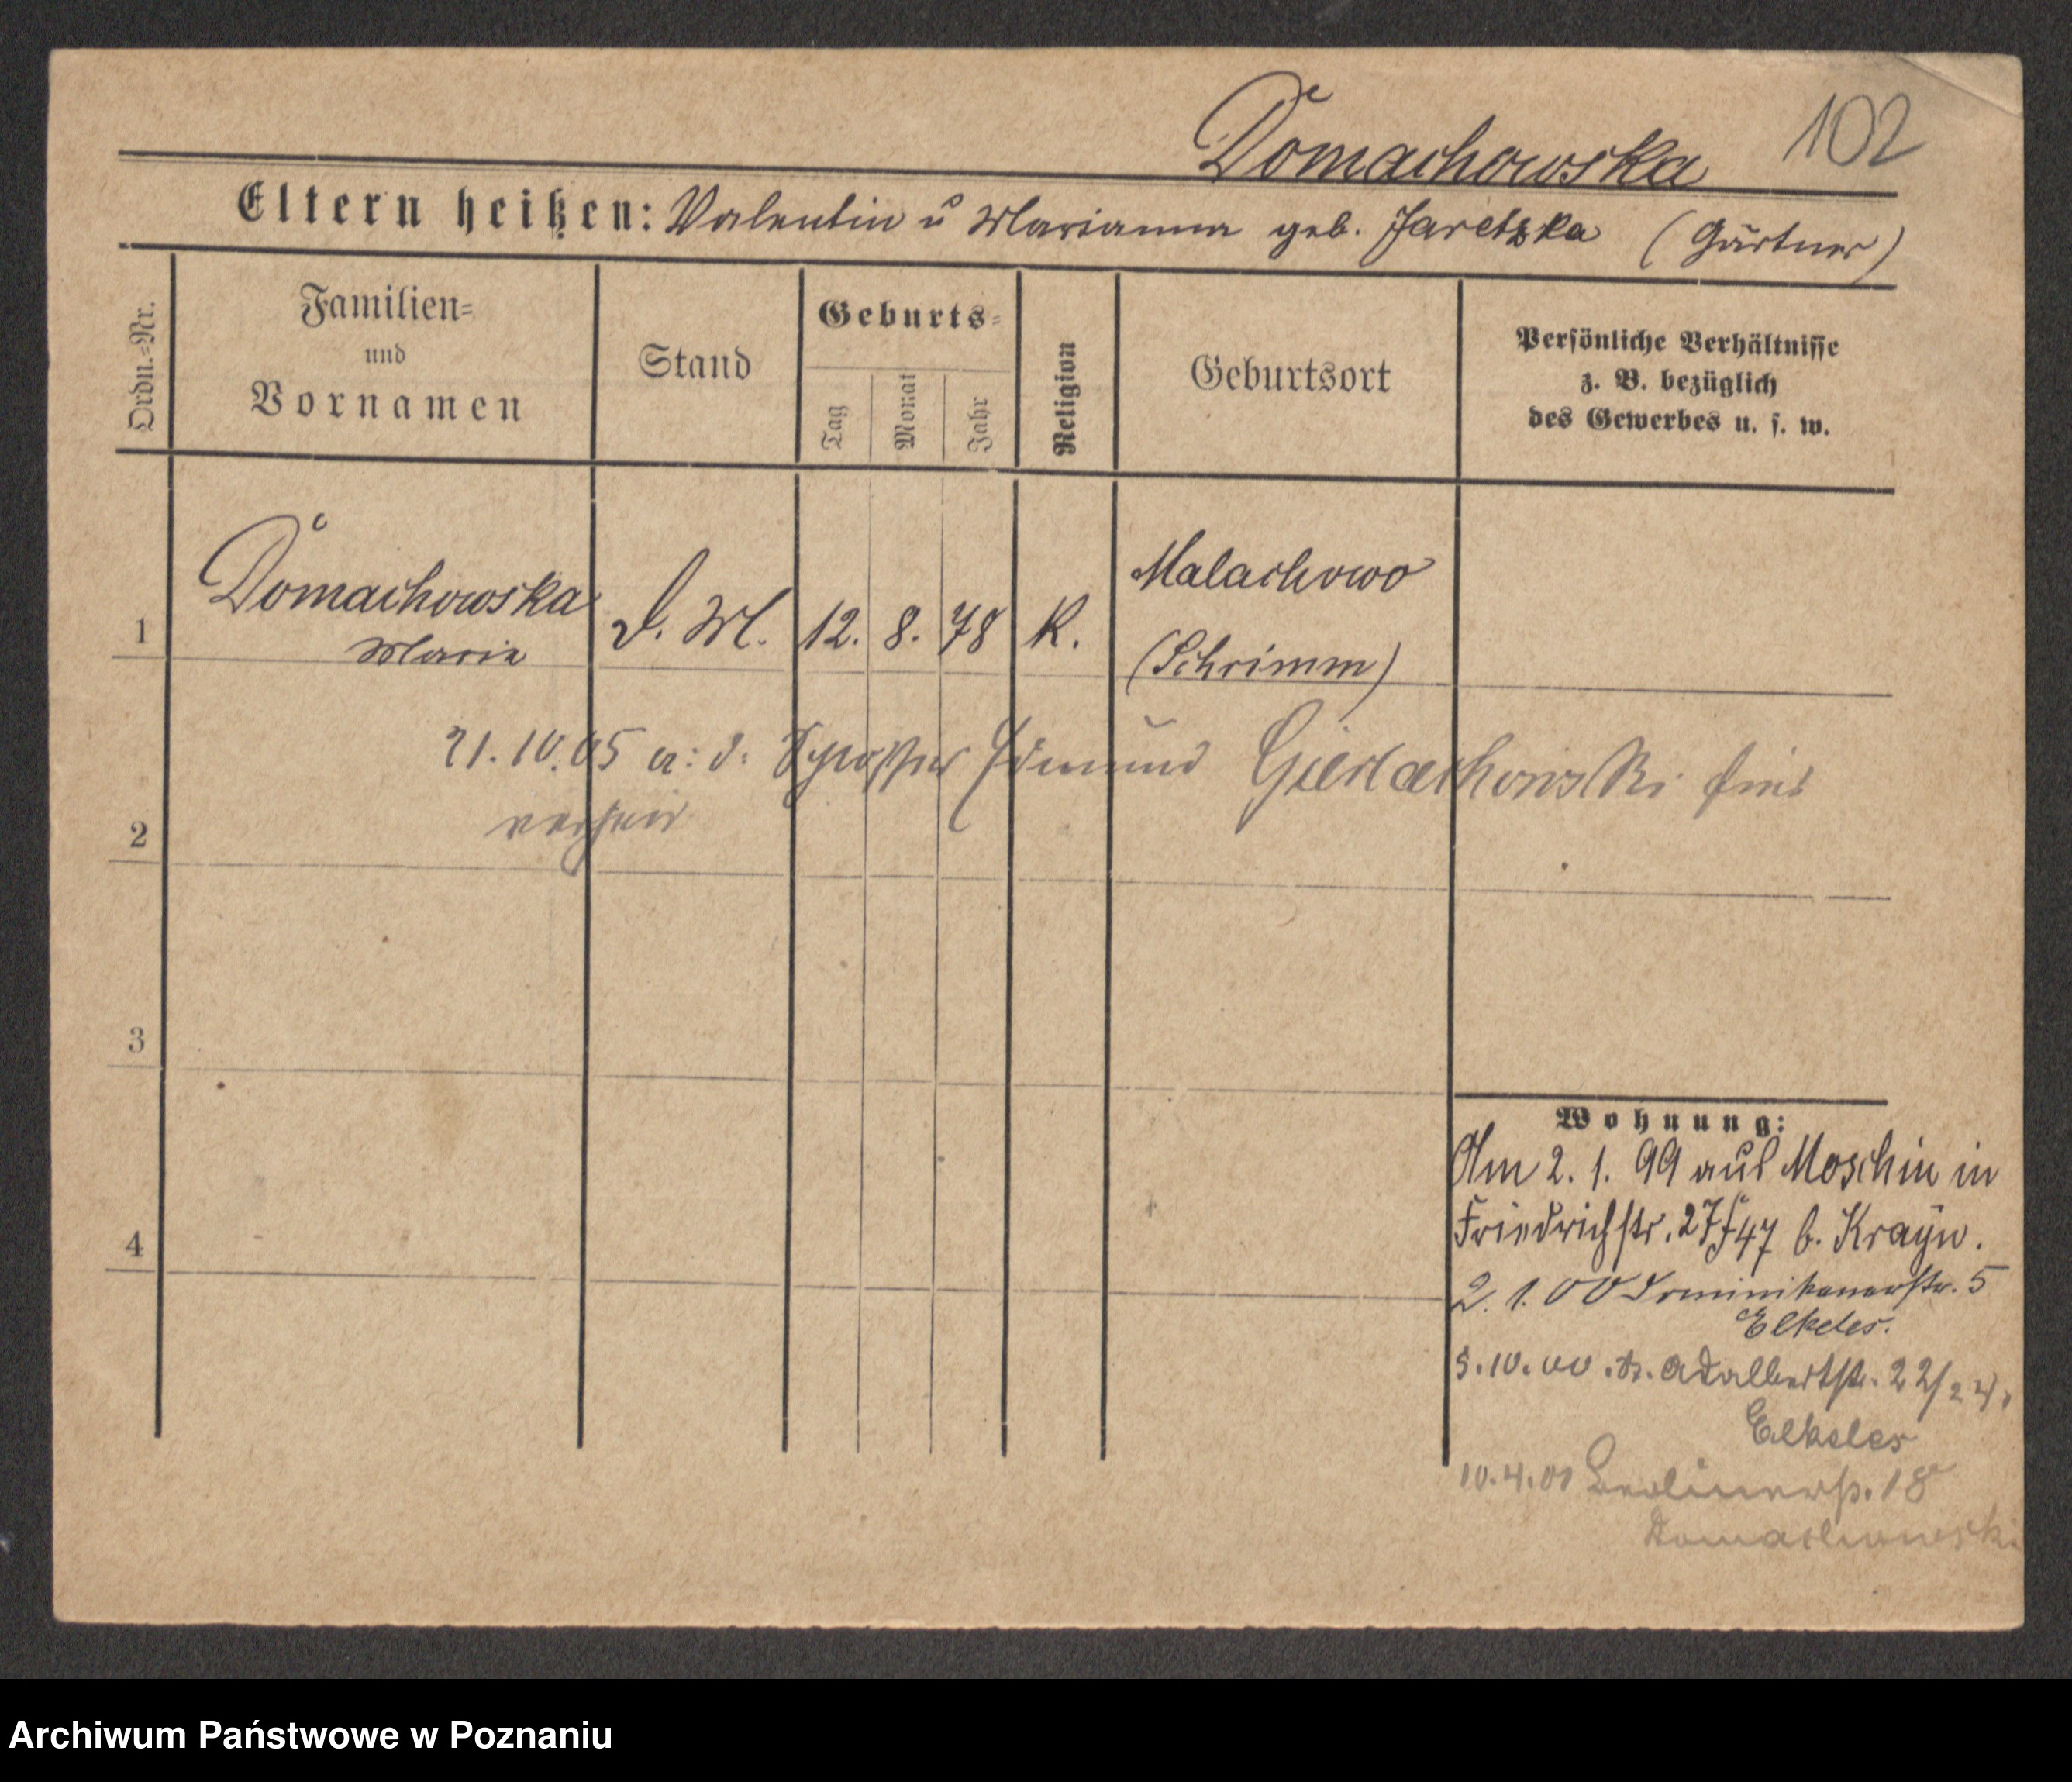 Domachowska 102
Eltern heißen: Valentin u Marianna geb. Jaretzka (Gärtner)
Ordn.=Nr.
Familien=
und
Vornamen
Stand
Geburts=
Tag
Monat
Jahr
Religion
Geburtsort
Persönliche Verhältnisse
z. B. bezüglich
des Gewerbes u. s. w.
Malachowo
1 Domachowska D. M. 12. 8. 78 K.
Marie
(Schrimm)
21.10.05 a: d: Edmund Gierlachowski
2
3
Wohnung:
Am 2. 1. 99 aus Moschin in
Friedrichstr. 27 b. Krayn.
4
2. 1. 00 Dominikanerstr. 5
Elkeles.
5.10.00. Adalbertstr. 22/24.
Elkeles
10.4.01 Berlinerstr. 18
Domachowski
Archiwum Państwowe w Poznaniu